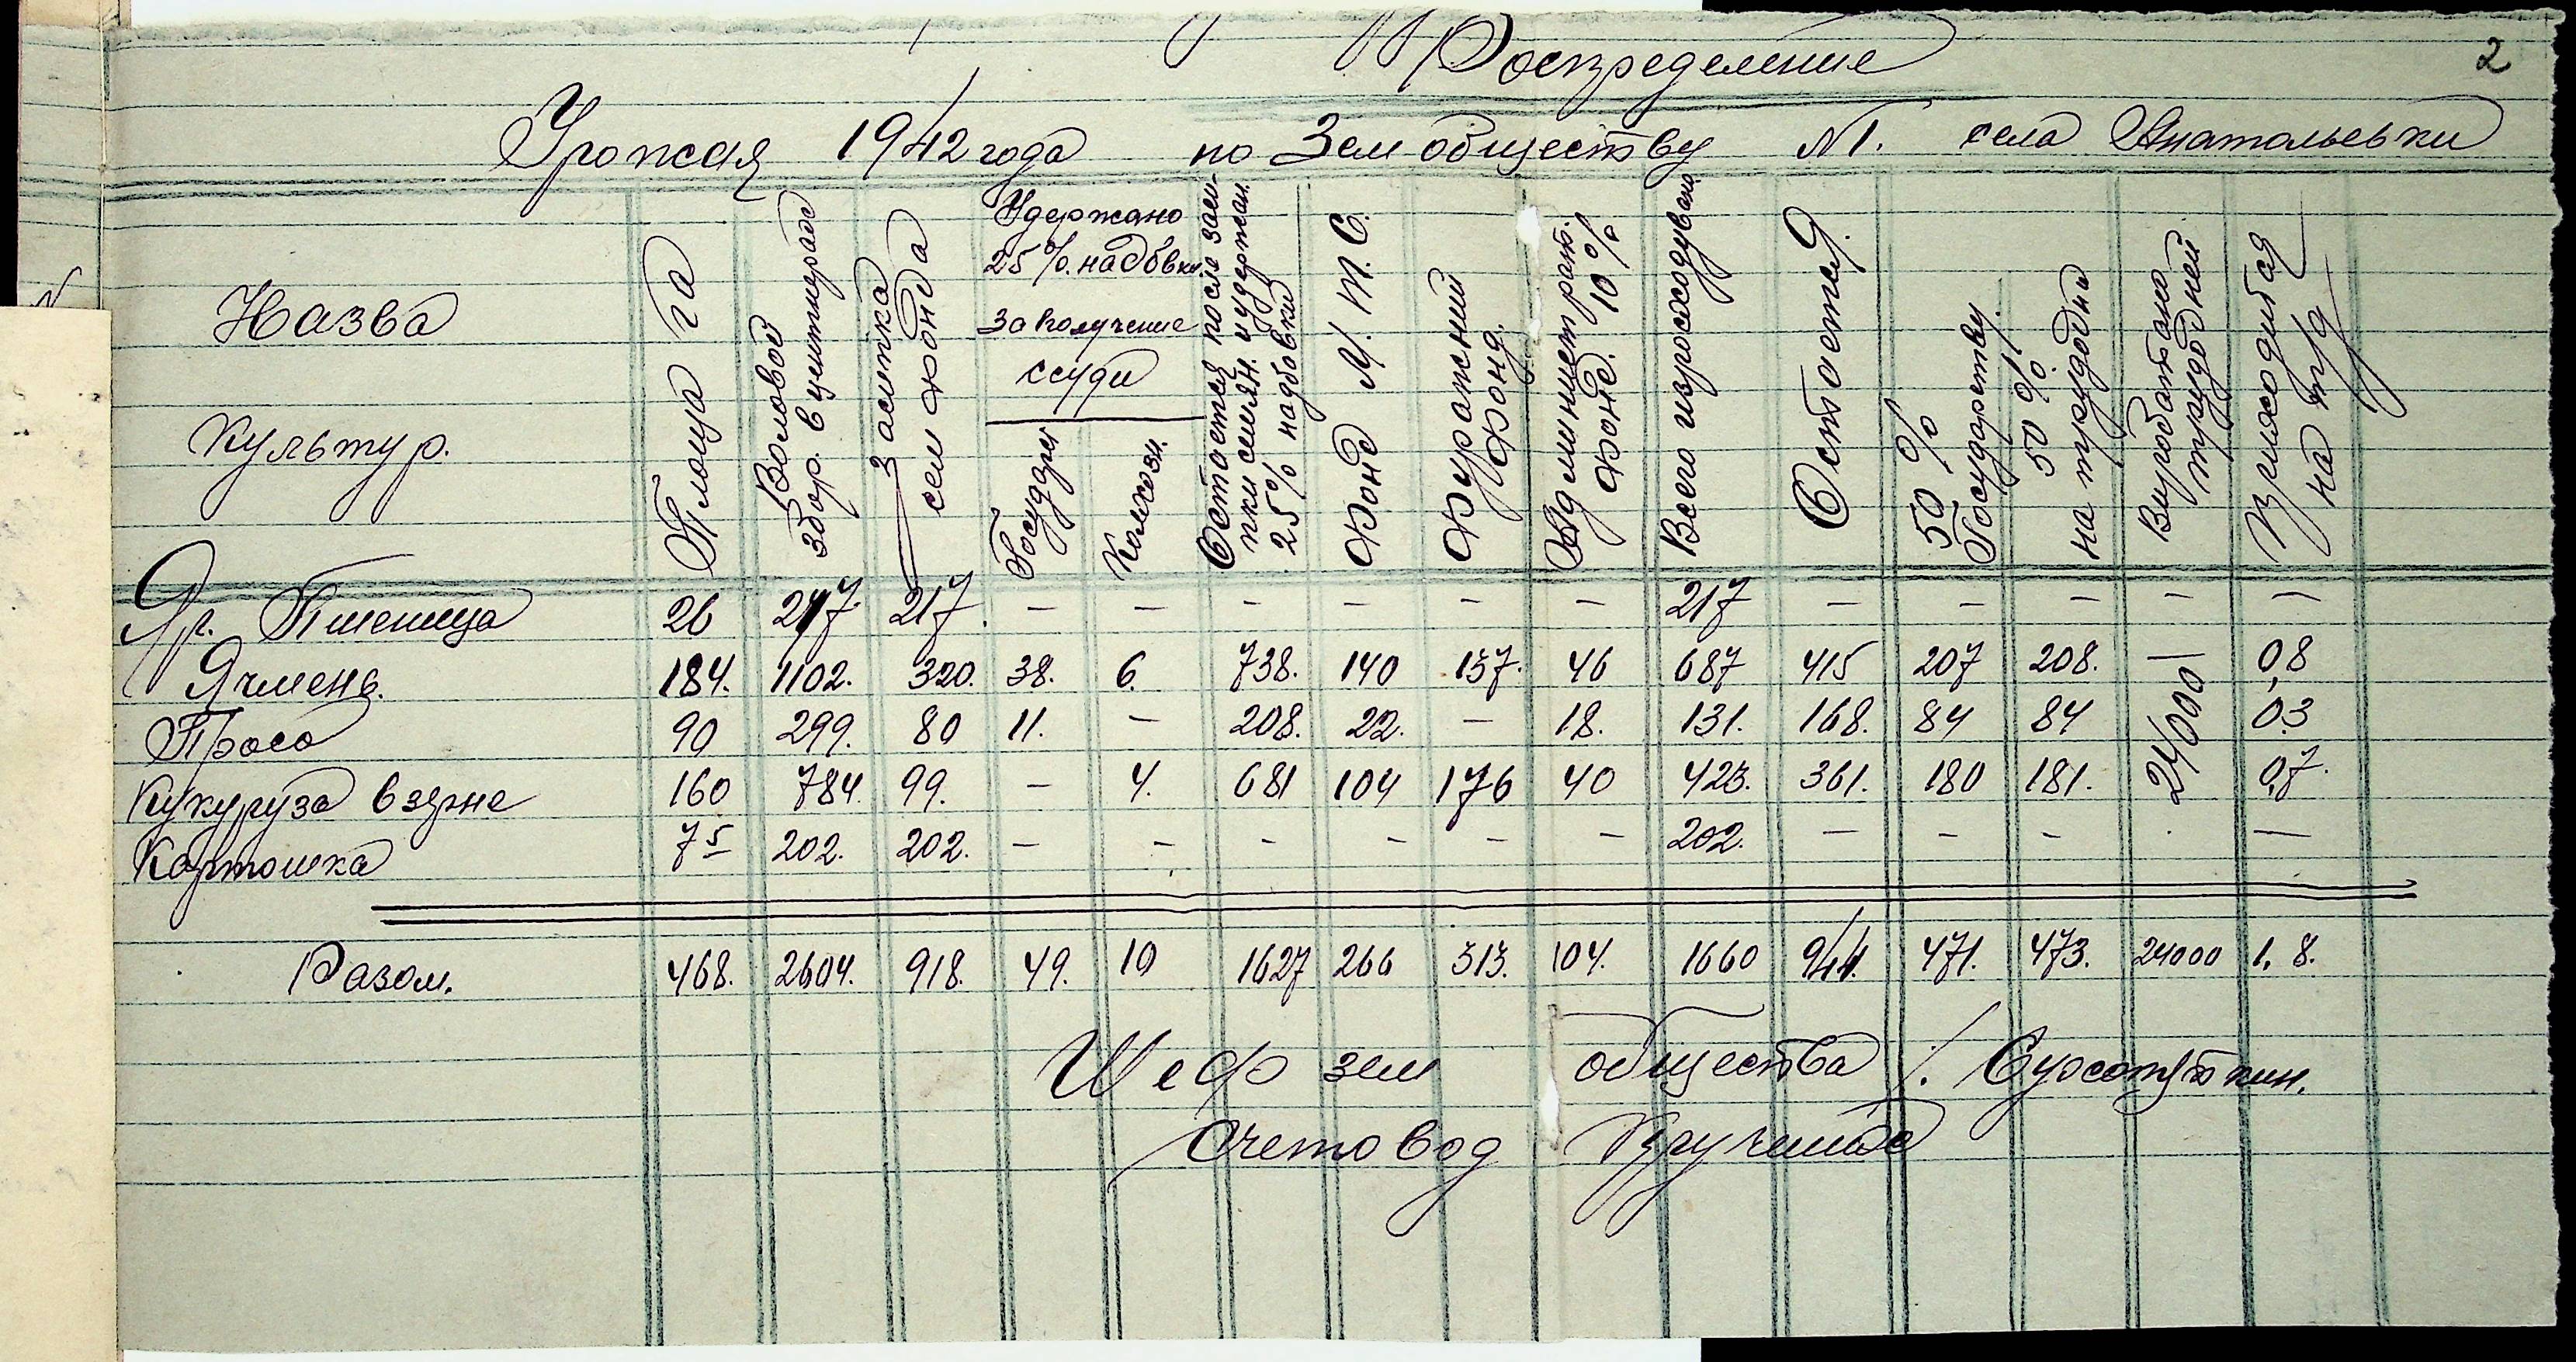 2
Роспределение
Урожая 1942 года по Зем обществу №1. села Анатольевки
Назва
Культур.
Площа га
Воловой
збор. в центнерах
Засипка
сем фонда
Удержано
25%. надбвки
за получение
ссуди
Госуддри
Колхозн.
Остается после заси-
пки семян. и удержан.
25% надбовки
Фонд М. Т. С.
Фуражний
Фонд.
Администрат.
Фонд. 10%
Всего израсходувано
Остается.
50%
Государству.
50%.
на трудодни
Виработано
трудодней
Приходится
на тр/д
Яр. Пшеница 26 217 217. — — — — — — 217 — — — — —
Ячмень. 184. 1102. 320. 38. 6. 738. 140 137. 46 687 415 207 208. — 0,8
Просо 90 299. 80 11. — 208. 22. — 18. 131. 168. 84 84 0.3
24000
Кукуруза в зерне 160 784. 99. — 4. 681 104 176 40 423. 361. 180 181. 0,7.
Картошка 7 5 202. 202. — — — — — — 202. — — — —
Разом. 468. 2604. 918. 49. 10 1627 266 313. 104. 1660 944. 471. 473. 24000 1,8.
Шеф зем общества /.
Счетовод